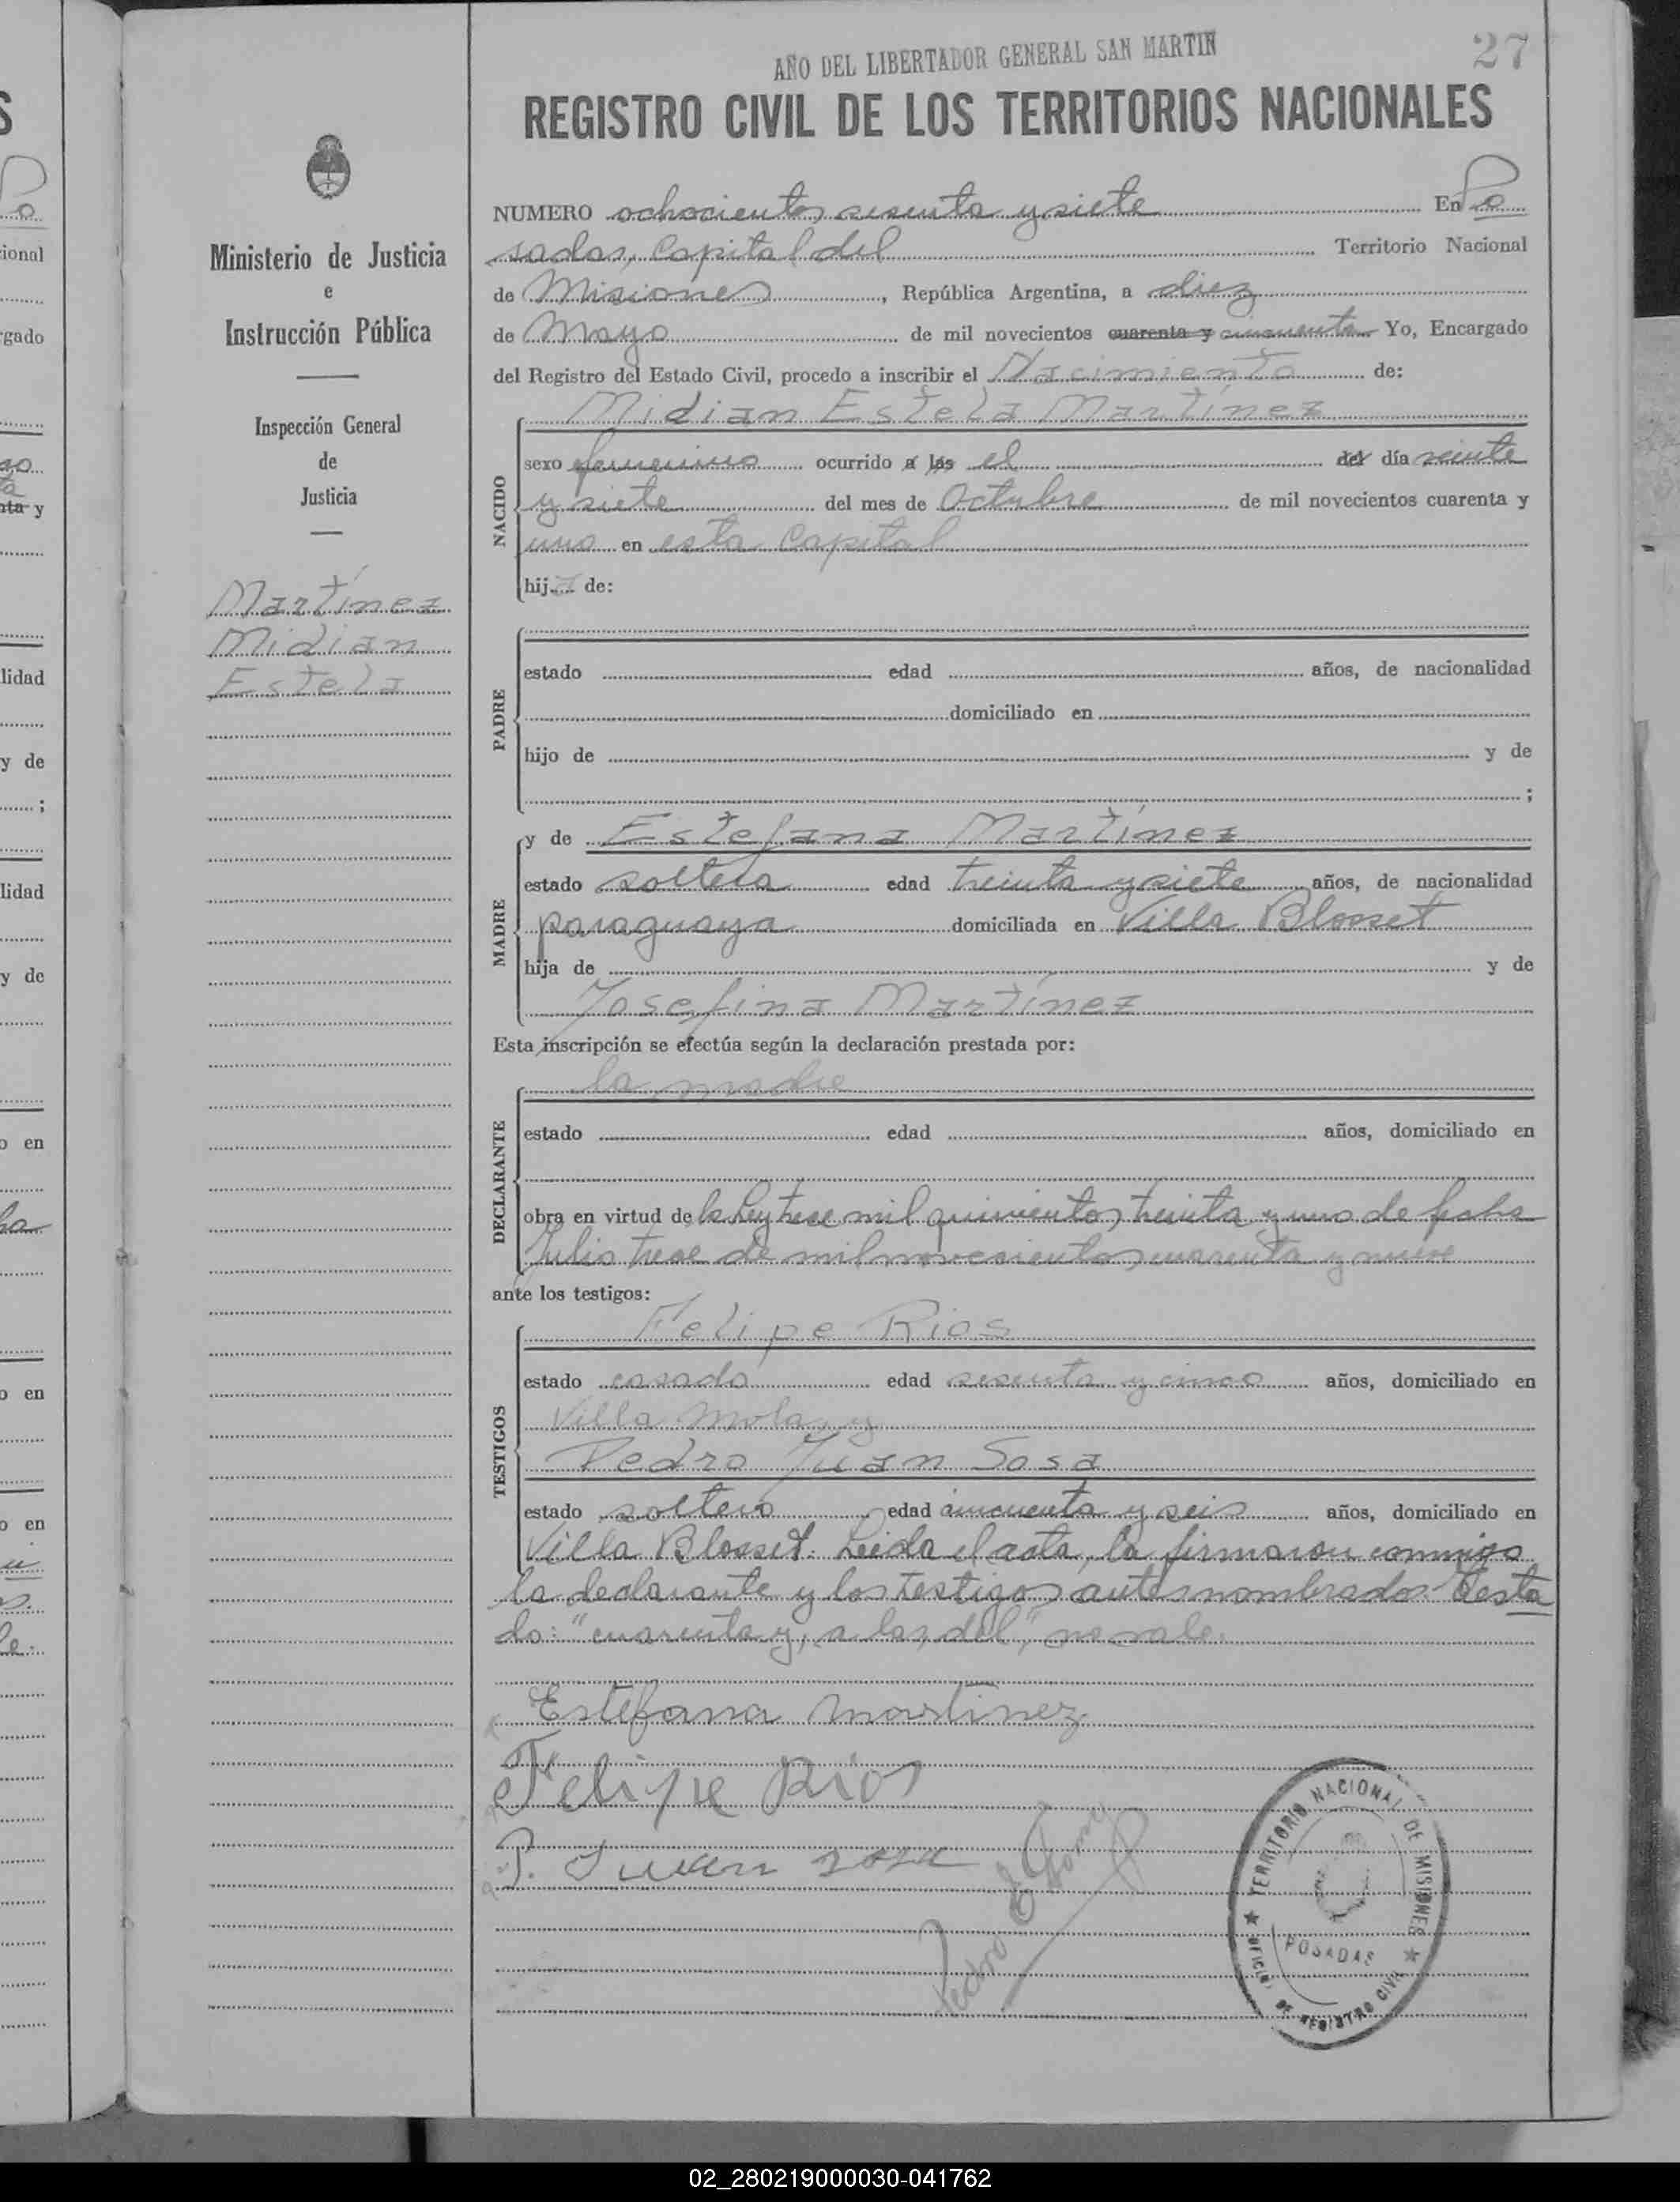 AÑO DEL LIBERTADOR GENERAL SAN MARTIN
27
REGISTRO CIVIL DE LOS TERRITORIOS NACIONALES
Ministerio de Justicia
e
Instrucción Pública
Inspección General
de
Justicia
Martínez
Midian
Estela
NUMERO ochocientos sesenta y siete En Po
sadas, Capital del Territorio Nacional
de Misiones, República Argentina, a diez
de Mayo de mil novecientos cuarenta y cincuenta Yo, Encargado
del Registro del Estado Civil, procedo a inscribir el Nacimiento de:
Midian Estela Martínez
NACIDO
sexo femenino ocurrido a las el del día veinte
y siete del mes de Octubre de mil novecientos cuarenta y
uno en esta Capital
hija de:
PADRE
estado edad años, de nacionalidad
domiciliado en
hijo de y de
;
MADRE
y de Estefana Martínez
estado soltera edad treinta y siete años, de nacionalidad
paraguaya domiciliada en Villa Blosset
hija de y de
Josefina Martínez
Esta inscripción se efectúa según la declaración prestada por:
DECLARANTE
la madre
estado edad años, domiciliado en
obra en virtud de la Ley trece mil quinientos treinta y uno de fecha
Julio trece de mil novecientos cuarenta y nueve
ante los testigos:
TESTIGOS
Felipe Rios
estado casado edad sesenta y cinco años, domiciliado en
Villa Mola, y
Pedro Juan Sosa
estado soltero edad cincuenta y seis años, domiciliado en
Villa Blosset. Leida el acta, la firmaron conmigo
la declarante y los testigos antes nombrados. Testa
do: "cuarenta y, a las, del", no vale.
Estefana Martinez
Felipe Rios
P. Juan Sosa
Pedro
TERRITORIO NACIONAL DE MISIONES
POSADAS
DE REGISTRO CIVIL
S
Po
ional
gado
nta y
lidad
y de
;
lidad
y de
o en
o en
o en
02_280219000030-041762